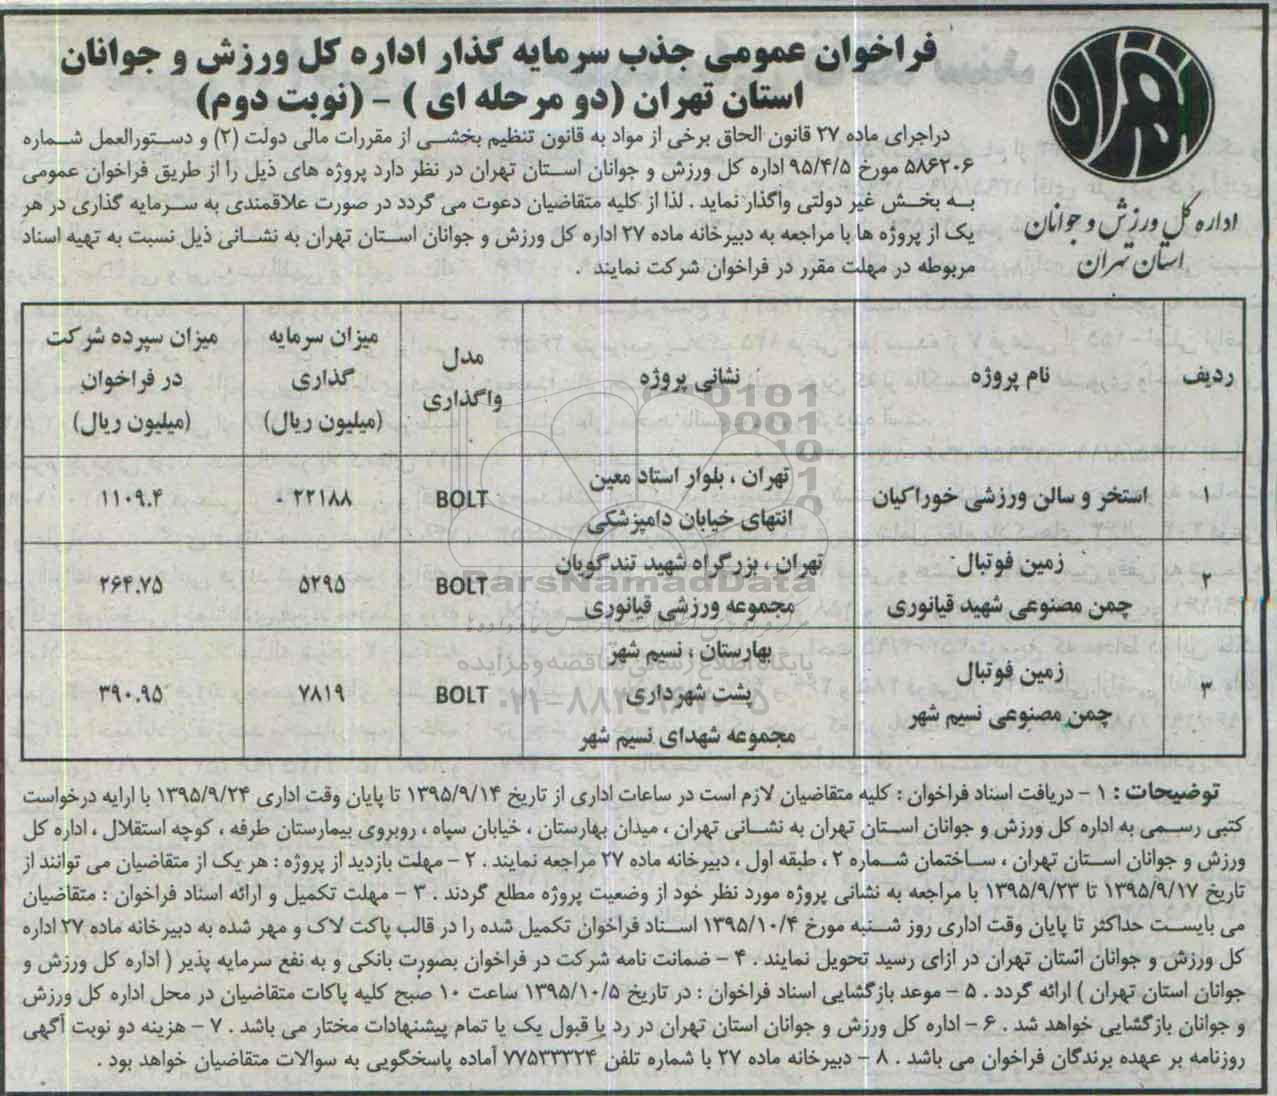 فراخوان عمومی جذب سرمایه گذار اداره کل ورزش و جوانان
استان تهران (دو مرحله ای) - (نوبت دوم)
تهران
اداره کل ورزش و جوانان
استان تهران
دراجرای ماده ۲۷ قانون الحاق برخی از مواد به قانون تنظیم بخشی از مقررات مالی دولت (۲) و دستورالعمل شماره
۵۸۶۲۰۶ مورخ ۹۵/۴/۵ اداره کل ورزش و جوانان استان تهران در نظر دارد پروژه های ذیل را از طریق فراخوان عمومی
به بخش غیر دولتی واگذار نماید . لذا از کلیه متقاضیان دعوت می گردد در صورت علاقمندی به سرمایه گذاری در هر
یک از پروژه ها با مراجعه به دبیرخانه ماده ۲۷ اداره کل ورزش و جوانان استان تهران به نشانی ذیل نسبت به تهیه اسناد
مربوطه در مهلت مقرر در فراخوان شرکت نمایند .
ردیف
نام پروژه
نشانی پروژه
مدل
واگذاری
میزان سرمایه
گذاری
(میلیون ریال)
میزان سپرده شرکت
در فراخوان
(میلیون ریال)
۱
استخر و سالن ورزشی خوراکیان
تهران ، بلوار استاد معین
انتهای خیابان دامپزشکی
BOLT
۲۲۱۸۸
۱۱۰۹.۴
۲
زمین فوتبال
چمن مصنوعی شهید قیانوری
تهران ، بزرگراه شهید تندگویان
مجموعه ورزشی قیانوری
BOLT
۵۲۹۵
۲۶۴.۷۵
۳
زمین فوتبال
چمن مصنوعی نسیم شهر
بهارستان ، نسیم شهر
پشت شهرداری
مجموعه شهدای نسیم شهر
BOLT
۷۸۱۹
۳۹۰.۹۵
ParsNamadData
پایگاه اطلاع رسانی مناقصه و مزایده
توضیحات : ۱ - دریافت اسناد فراخوان : کلیه متقاضیان لازم است در ساعات اداری از تاریخ ۱۳۹۵/۹/۱۴ تا پایان وقت اداری ۱۳۹۵/۹/۲۴ با ارایه درخواست
کتبی رسمی به اداره کل ورزش و جوانان استان تهران به نشانی تهران ، میدان بهارستان ، خیابان سپاه ، روبروی بیمارستان طرفه ، کوچه استقلال ، اداره کل
ورزش و جوانان استان تهران ، ساختمان شماره ۲ ، طبقه اول ، دبیرخانه ماده ۲۷ مراجعه نمایند . ۲ - مهلت بازدید از پروژه : هر یک از متقاضیان می توانند از
تاریخ ۱۳۹۵/۹/۱۷ تا ۱۳۹۵/۹/۲۳ با مراجعه به نشانی پروژه مورد نظر خود از وضعیت پروژه مطلع گردند . ۳ - مهلت تکمیل و ارائه اسناد فراخوان : متقاضیان
می بایست حداکثر تا پایان وقت اداری روز شنبه مورخ ۱۳۹۵/۱۰/۴ اسناد فراخوان تکمیل شده را در قالب پاکت لاک و مهر شده به دبیرخانه ماده ۲۷ اداره
کل ورزش و جوانان استان تهران در ازای رسید تحویل نمایند . ۴ - ضمانت نامه شرکت در فراخوان بصورت بانکی و به نفع سرمایه پذیر ( اداره کل ورزش و
جوانان استان تهران ) ارائه گردد . ۵ - موعد بازگشایی اسناد فراخوان : در تاریخ ۱۳۹۵/۱۰/۵ ساعت ۱۰ صبح کلیه پاکات متقاضیان در محل اداره کل ورزش
و جوانان بازگشایی خواهد شد . ۶ - اداره کل ورزش و جوانان استان تهران در رد یا قبول یک یا تمام پیشنهادات مختار می باشد . ۷ - هزینه دو نوبت آگهی
روزنامه بر عهده برندگان فراخوان می باشد . ۸ - دبیرخانه ماده ۲۷ با شماره تلفن ۷۷۵۳۳۳۲۴ آماده پاسخگویی به سوالات متقاضیان خواهد بود .